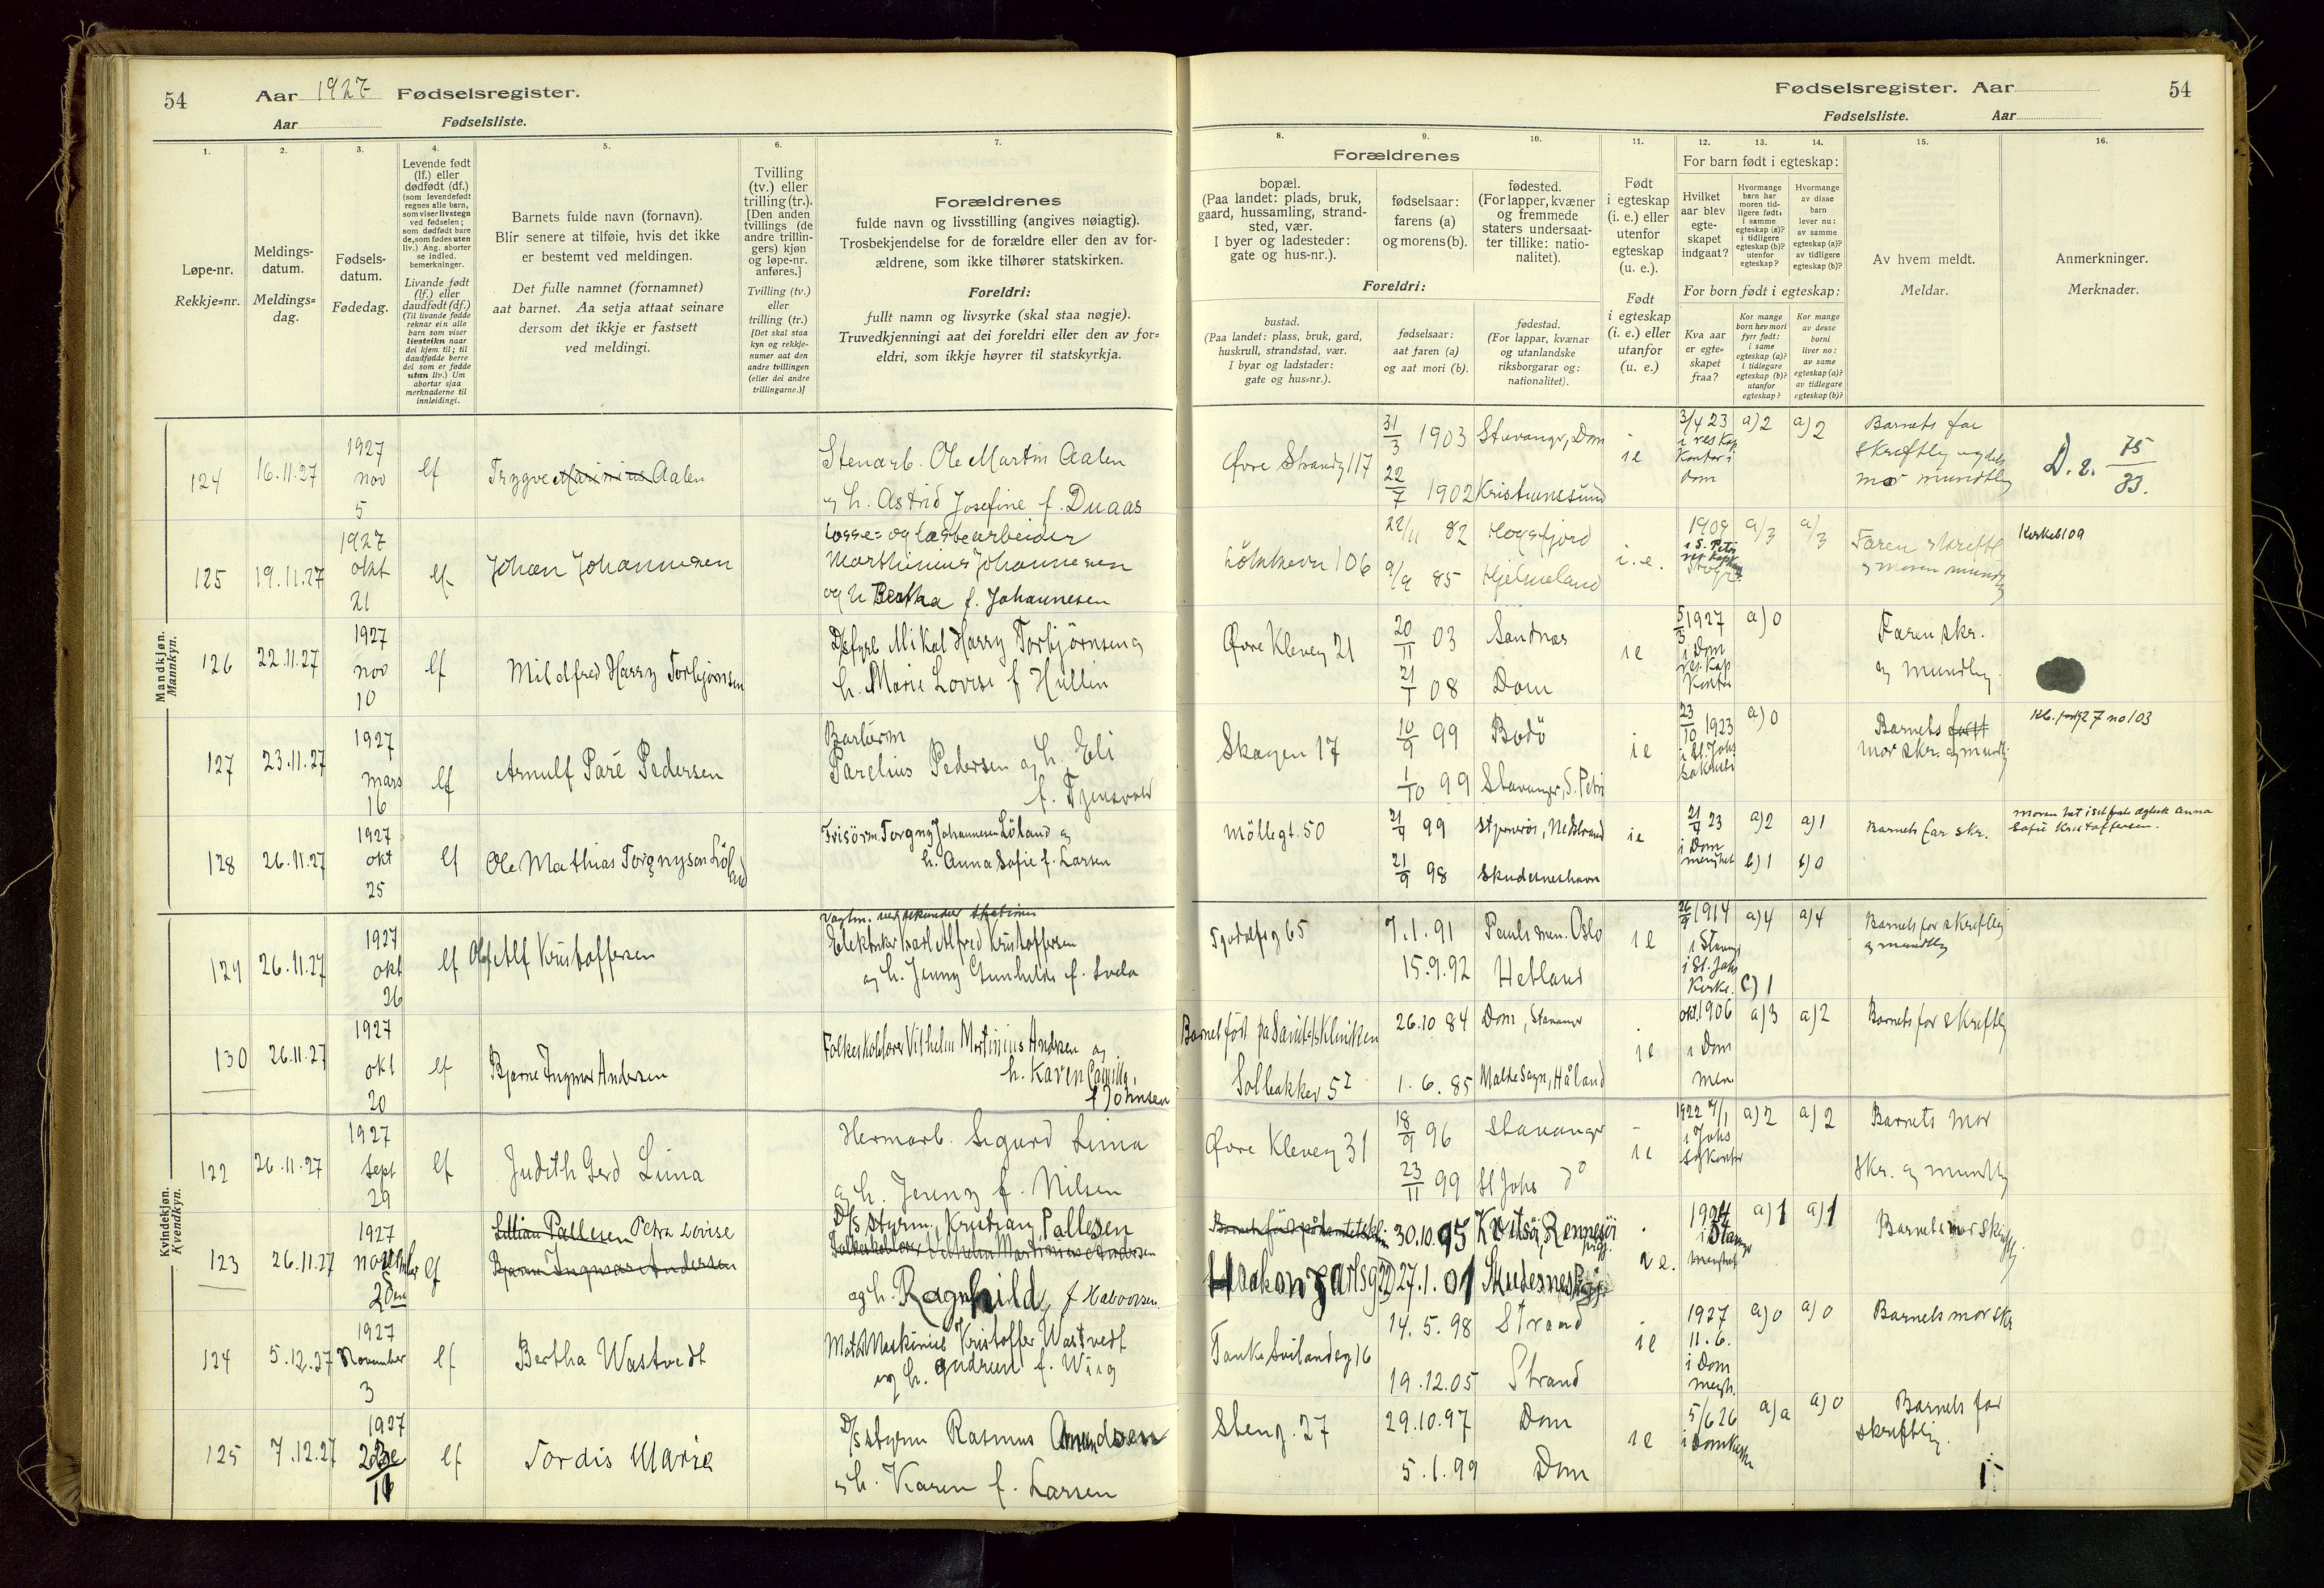 54 Aar 1927 Fødselsregister.
Aar Fødselsliste.
Fødselsregister. Aar 54
Fødselsliste. Aar
1. 2. 3. 4. 5. 6. 7.
Løpe-nr.
Rekkje=nr.
Meldings-
datum.
Meldings=
dag.
Fødsels-
datum.
Fødedag.
Levende født
(lf.) eller
dødfødt (df.)
(som levendefødt
regnes alle barn,
som viser livstegn
ved fødselen;
som dødfødt bare
de, som fødes uten
liv.) Ang. aborter
se indled.
bemerkninger.
Livande født
(lf.) eller
daudfødt (df.)
(Til livande fødde
reknar ein alle
barn som viser
livsteikn naar
dei kjem til; til
daudfødde berre
dei som er fødde
utan liv.) Um
abortar sjaa
merknaderne til
innleidingi.
Barnets fulde navn (fornavn).
Blir senere at tilføie, hvis det ikke
er bestemt ved meldingen.
Det fulle namnet (fornamnet)
aat barnet. Aa setja attaat seinare
dersom det ikkje er fastsett
ved meldingi.
Tvilling
(tv.) eller
trilling (tr.).
[Den anden
tvillings (de
andre trillin-
gers) kjøn
og løpe-nr.
anføres.]
Tvilling (tv.)
eller
trilling (tr.)
[Det skal staa
kyn og rekkje-
numer aat den
andre tvillingen
(eller dei andre
trillingarne.)]
Forældrenes
fulde navn og livsstilling (angives nøiagtig).
Trosbekjendelse for de forældre eller den av for-
ældrene, som ikke tilhører statskirken.
Foreldri:
fullt namn og livsyrke (skal staa nøgje).
Truvedkjenningi aat dei foreldri eller den av for=
eldri, som ikkje høyrer til statskyrkja.
8. 9. 10. 11. 12. 13. 14. 15. 16.
Forældrenes
bopæl.
(Paa landet: plads, bruk,
gaard, hussamling, strand-
sted, vær.
I byer og ladesteder:
gate og hus-nr.).
fødselsaar:
farens (a)
og morens (b).
fødested.
(For lapper, kvæner
og fremmede
staters undersaat-
ter tillike: natio-
nalitet).
Foreldri:
bustad.
(Paa landet: plass, bruk, gard,
huskrull, strandstad, vær.
I byar og ladstader:
gate og hus=nr.).
fødselsaar:
aat faren (a)
og aat mori (b).
fødestad.
(For lappar, kvænar
og utanlandske
riksborgarar og:
nationalitet).
Født
i egteskap
(i. e.) eller
utenfor
egteskap
(u. e.).
Født
i egteskap
(i. e.) eller
utanfor
(u. e.)
For barn født i egteskap:
Hvilket
aar blev
egte-
skapet
indgaat?
Hvormange
barn har
moren tid-
ligere født:
i samme
egteskap (a)?
i tidligere
egteskap (b)?
utenfor
egteskap?
Hvormange
av disse
barn
lever nu:
av samme
egteskap (a)?
av tidligere
egteskap (b)?
For born født i egteskap:
Kva aar
er egte=
skapet
fraa?
Kor mange
born hev mori
fyrr født:
i same
egteskap (a)?
i tidlegare
egteskap (b)?
utanfor
egteskap?
Kor mange
av desse
borni
liver no:
av same
egteskap (a)?
av tidlegare
egteskap (b)?
Av hvem meldt.
Meldar.
Anmerkninger.
Merknader.
Mandkjøn.
Mannkyn.
124 16.11.27 1927 nov 5 lf Trygve Marinius Aalen
Stenarb. Ole Martin Aalen
og h. Astrid Josefine f. Duaas
Øvre Strandg 117
31/3 1903 Stavanger, Dom
22/7 1902 Kristiansund
ie 3/4 23 i res Kap Kontor i Dom a) 2 a) 2
Barnets far
skriftlig og dets
mor mundtlig
D. r. 75/83.
125 19.11.27 1927 okt 21 lf Johan Johannesen
Losse= og lastearbeider
Marthinius Johannesen
og h Bertha f. Johannesen
106
22/11 82 Høgsfjord
9/9 85 Hjelmeland
i.e. 1909 i S. Petri a/3 a/3
Faren skriftl
og moren mundtlig
126 22.11.27 1927 nov 10 lf Mildfred Harry Torbjørnsen
D/sfyrb Mikal Harry Torbjørnsen og
h. Marie Lovise f Hullin
Øvre Kleveg 21
20/11 03 Sandnes
21/1 08 Dom
ie 5/3 1927 i Dom res. Kap Kontor a) 0
Faren skr.
og mundtlig
127 23.11.27 1927 mars 16 lf Arnulf Paré Pedersen
Parelius Pedersen og h. Eli
f. Tjensvold
Skagen 17
10/9 99 Bodö
1/10 99 Stavanger, S. Petri
ie 23/10 1923 i St. Johs a) 0
Barnets
mor skr. og mundtl
128 26.11.27 1927 okt 25 lf Ole Mathias Torgnyson Löland
Frisörm. Torgny Johannesen Löland og
h. Anna Sofie f. Larsen
Möllegt. 50
21/9 99 Stjernerøi, Nedstrand
21/9 98 Skudesneshavn
ie 21/4 23 i Dom menighet a) 2 a) 1
b) 1 b) 0
Barnets far skr.
Sofie Kristoffersen.
129 26.11.27 1927 okt 26 lf Olaf Alf Kristoffersen
Elektriker Karl Alfred Kristoffersen
og h. Jenny Gunhilde f. Svela
65
7.1.91 Pauls men. Oslo
15.9.92 Hetland
ie 26/9 1914 i Stavang i St. Johs Kirke. a) 4 a) 4
c) 1
Barnets far skriftlig
og mundtlig
130 26.11.27 1927 okt 20 lf Bjarne Ingmar Andersen
Vilhelm Martinius Andersen og
h. Karen Camilla
f Johnsen
Barnet født på Sanitetsklinikken
Solbakkev 52
26.10 84 Dom, Stavanger
1. 6. 85 Malde Sogn, Håland
ie okt. 1906 i Dom men a) 3 a) 2
Barnets far skriftlig
Kvindekjøn.
Kvendkyn.
122 26.11.27 1927 Sept 29 lf Judith Gerd Lima
Hermarb. Sigurd Lima
og h. Jenny f. Nilsen
Øvre Kleveg 31
18/9 96 Stavanger
23/11 99 St Johs do
ie 1922 7/1 i Johs a) 2 a) 2
Barnets mor
skr. og mundtlig
123 26.11.27 1927 november 2den lf Lillian Pallesen Petra Lovise
Bjarne Ingmar Andersen
D/s styrm. Kristian Pallesen
Vilhelm Martinius Andersen
og h. Ragnhild f Halvorsen
Haakon Jarlsg
30.10.95 Kvitsöi, Rennesöi
27.1.01 Skudesnes
a) 1 a) 1
Barnets mor skriftlig.
124 5.12.27 1927 November 3 lf Bertha Wastvedt
Kristoffer Wastvedt
og h. Gudrun f. Wiig
Tanke Svilandsg 16
14. 5. 98 Strand
19.12.05 Strand
ie 1927 11.6. i Dom mengh. a) 0 a) 0
Barnets mor skr
125 7.12.27 1927 lf Tordis Marie
D/s styrm Rasmus Amundsen
og h. Karen f. Larsen
Steng. 27
29.10.97 Dom
5.1.99 Dom
ie 5/6 26 i Domkirke a) 0
Barnets far
skriftlig.